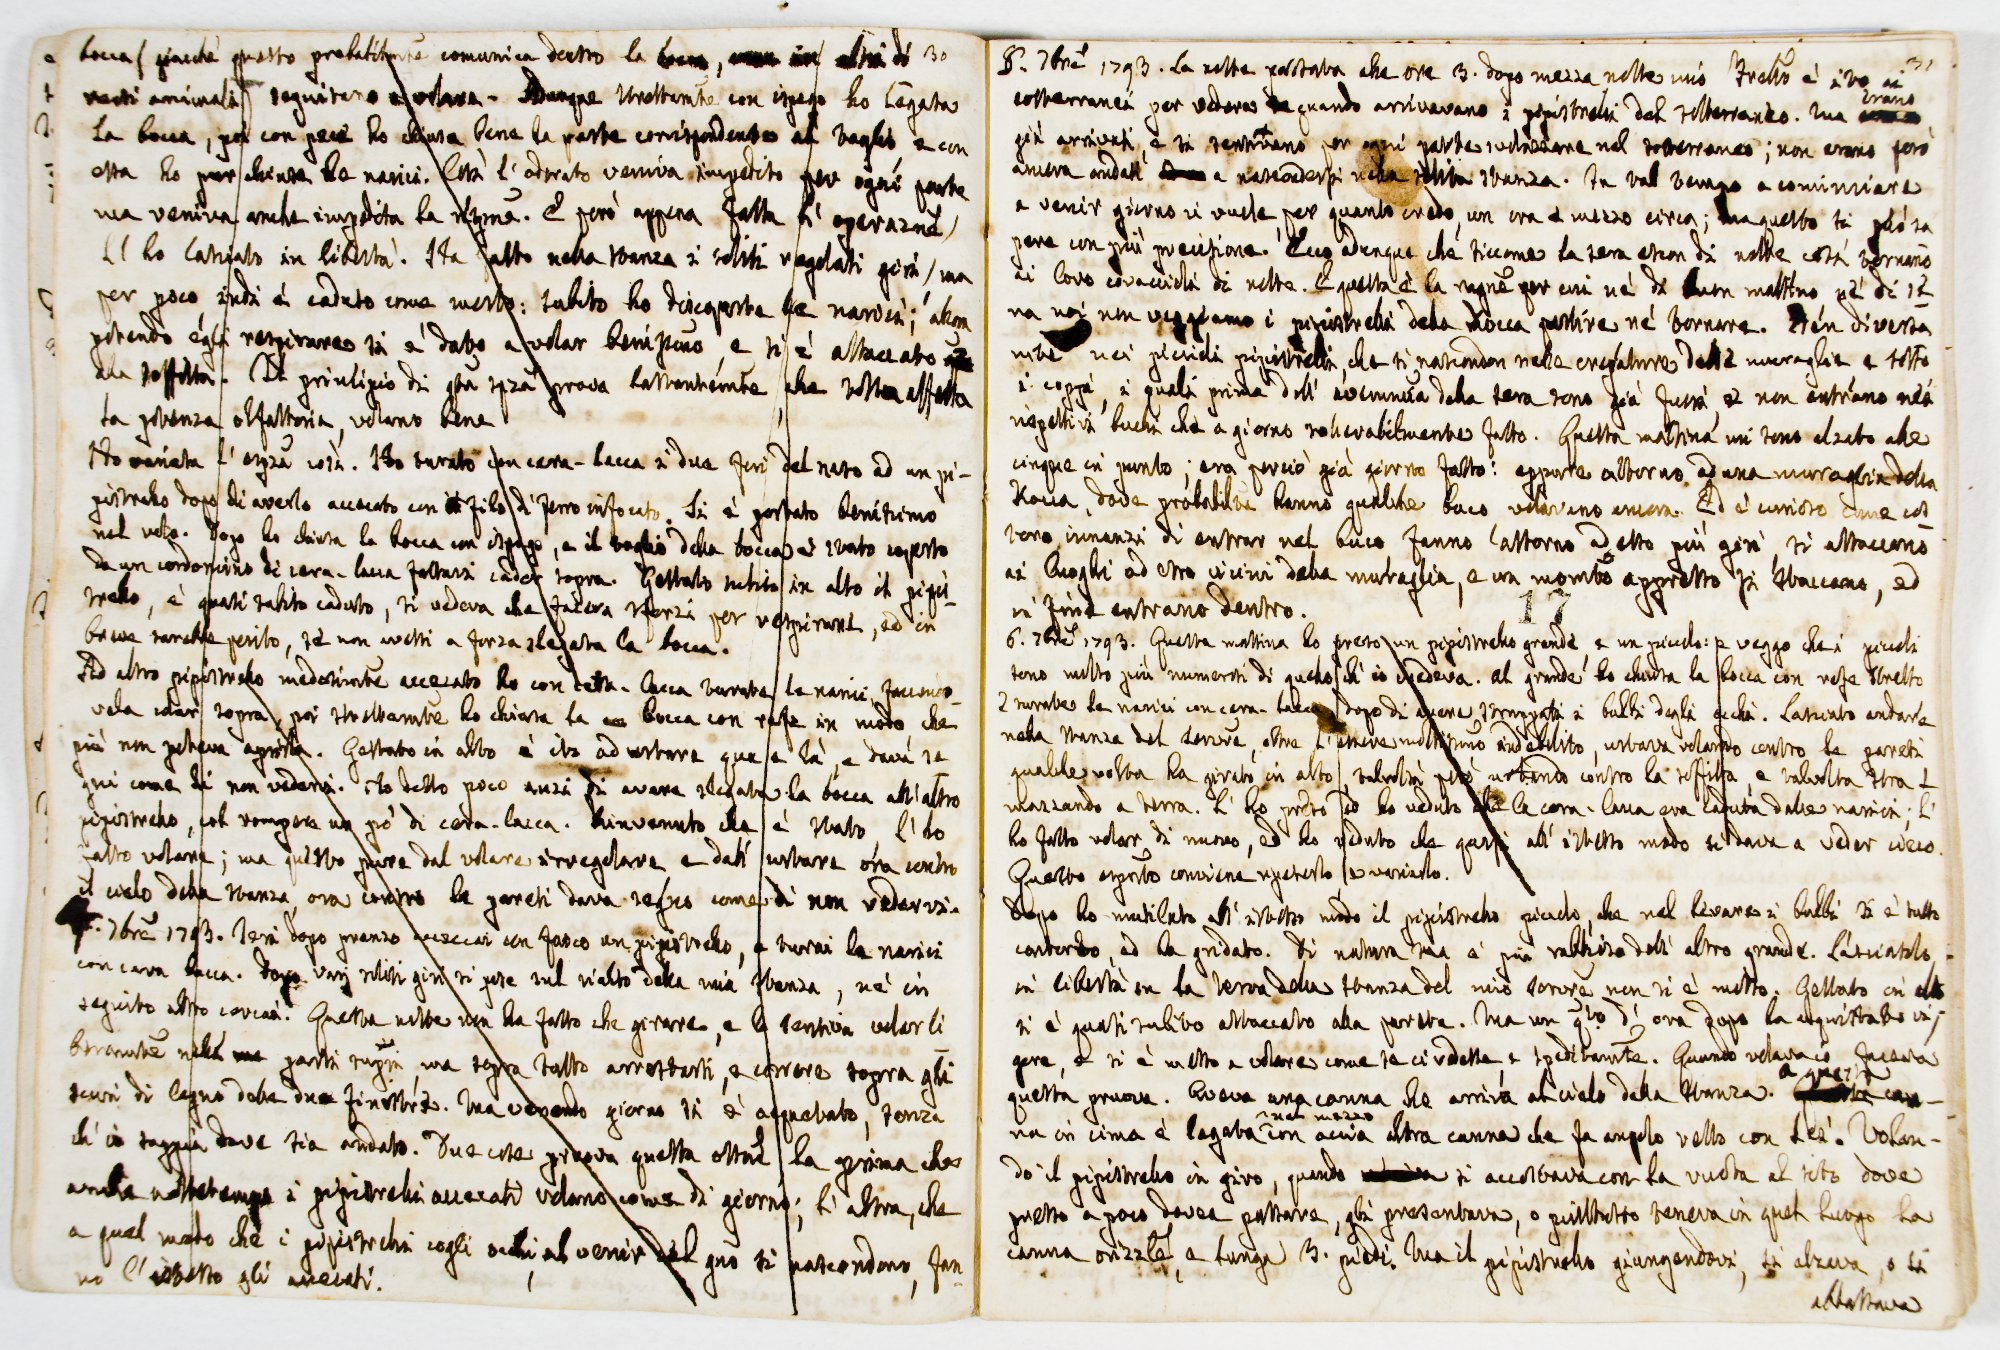 bocca (giacchè questo probabilmte comunica dentro la bocca, 30
venti animali) seguitano a volare. Dunque strettamte con ispago ho legata
la bocca, poi con pece ho chiusa bene la parte corrispondente al taglio e con
essa ho pur chiuse le narici. Così l'odorato veniva impedito per ogni parte
ma veniva anche impedita la respne. E però appena fatta l'operazne
l'ho lasciato in libertà. Ha fatto nella stanza i soliti regolati giri, ma
per poco, indi è caduto come morto: subito ho discoperte le narici; allora
potendo egli respirare si è dato a volar benissimo, e si è attaccato
alla soffitta. Il principio di qta spza prova lassamte, che tolta affatto
la potenza olfattoria, volano bene
Ho variata l'espza così. Ho turato con cera-lacca i due fori del naso ad un pi-
pistrello dopo di averlo accecato con filo di ferro infocato. Si è portato benissimo
nel volo. Dopo ho chiusa la bocca con ispago, e il taglio della bocca è stato coperto
da un cordoncino di cera-lacca fattavi cader sopra. Gettato subito in alto il pipi-
trello, è quasi subito caduto, si vedeva che faceva sforzi per respirare, ed in
breve sarebbe perito, se non avessi a forza slegata la bocca.
Ad altro pipistrello medesimte accecato ho con cera-lacca turate le narici, facendo-
vela colar sopra, poi strettamte ho chiusa la bocca con refe in modo che
più non poteva aprirla. Gettato in alto è ito ad urtare qua e là, e dava se
gni come di non vederci. Ho detto poco anzi di avere slegata la bocca all'altro
pipistrello, col rompere un pò di cera-lacca. Rinvenuto che è stato, l'ho
fatto volare; ma questo pure dal volare irregolare e dall'urtare ora contro
il cielo della stanza, ora contro le pareti dava segno come di non vederci.
7bre 1793. Ieri dopo pranzo accecai con fuoco un pipistrello, e turai le narici
con cera lacca. Dopo varj soliti giri si pose sul rialto della mia stanza, nè in
seguito altro cercai. Questa notte non ha fatto che girare, e lo sentiva volar li
beramte nelle parti supni, ma sopra tutto arrestarsi, e correre sopra gli
scuri di legno delle due finestre. Ma venendo giorno si è acquetato, senza
ch'io sappia dove sia andato. Due cose prova questa ossne la prima che
anche nottetempo i pipistrelli accecati volano come di giorno; l'altra, che
a quel modo che i pipistrelli cogli occhi, al venir del gno si nascondono, fan-
no l'istesso gli accecati.
8. 7bre 1793. La notte passata alle ore 3. dopo mezza notte mio Frello è ito ai 31
sotterranei per vedere quando arrivavano i pipistrelli del sotterraneo. Ma erano
già arrivati, e si sentivano per ogni parte svolazzare nel sotterraneo; non erano però
ancora andati a nascondersi nella solita stanza. In tal tempo a cominciare
a venir giorno vi vuole per quanto credo, un ora e mezzo circa; ma questo si può sa
pere con più precisione. Ecco adunque che siccome la sera escon di notte così tornano
ai loro covaccioli di notte. E questa è la ragne per cui nè di buon mattino, nè di se
ra noi non veggiamo i pipistrelli della Rocca partire nè tornare. Men diversa
mte nei piccioli pipistrelli, che si nascondon nelle crepature delle muraglie e sotto
i coppi, i quali prima dell'avvenuta della sera sono già fuori, e non entrano nei
rispettivi buchi che a giorno notevolmente fatto. Questa mattina mi sono alzato alle
cinque in punto; era perciò già giorno fatto: eppure attorno ad una muraglia della
Rocca, dove probabilte hanno qualche buco volavano ancora. Ed è curioso come cos
toro innanzi di entrar nel buco fanno attorno ad esso più giri, si attaccano
ai luoghi ad esso vicini della muraglia, e un momto appresso si staccano, ed
in fine entrano dentro.
17
6. 7bre 1793. Questa mattina ho preso un pipistrello grande e un picciolo: e veggo che i piccioli
sono molto più numerosi di quello ch'io credeva. Al grande ho chiusa la bocca con refe stretto
e turate le narici con cera-lacca dopo di avere strappati i bulbi degli occhi. Lasciato andare
nella stanza del servre, oltre l'essere moltissimo indebolito, urtava volando contro le pareti
qualche volta ha girato in alto talvolta però urtando contro la soffitta, e talvolta stra
mazzando a terra. L'ho preso ed ho veduto che la cera-lacca era caduta dalle narici; l'
ho fatto volar di nuovo, ed ho veduto che quasi all'istesso modo si dava a veder cieco.
Questo esprto conviene ripeterlo e variarlo.
Dopo ho mutilato all'istesso modo il pipistrello picciolo, che nel levare i bulbi si è tutto
contorto, ed ha gridato. Di natura sua è più rabbioso dell'altro grande. Lasciatolo
in libertà su la terra della stanza del mio servre non si è mosso. Gettato in alto
si è quasi subito attaccato alla parete. Ma un qto d'ora dopo ha acquistato vi-
gore, e si è messo a volare come se ci vedesse, e speditamte. Quando volava io faceva
questa pruova. Aveva una canna che arriva al cielo della stanza. a questa can-
na in cima è legata nel mezzo con accia altra canna che fa angolo retto con lei. Volan-
do il pipistrello in giro, quando si accostava con la vuota al sito dove
presso a poco dovea passare, gli presentava, o piuttosto teneva in quel luogo la
canna orizzle, e lunga 3. piedi. Ma il pipistrello giungendovi, si alzava, o si
abbassava